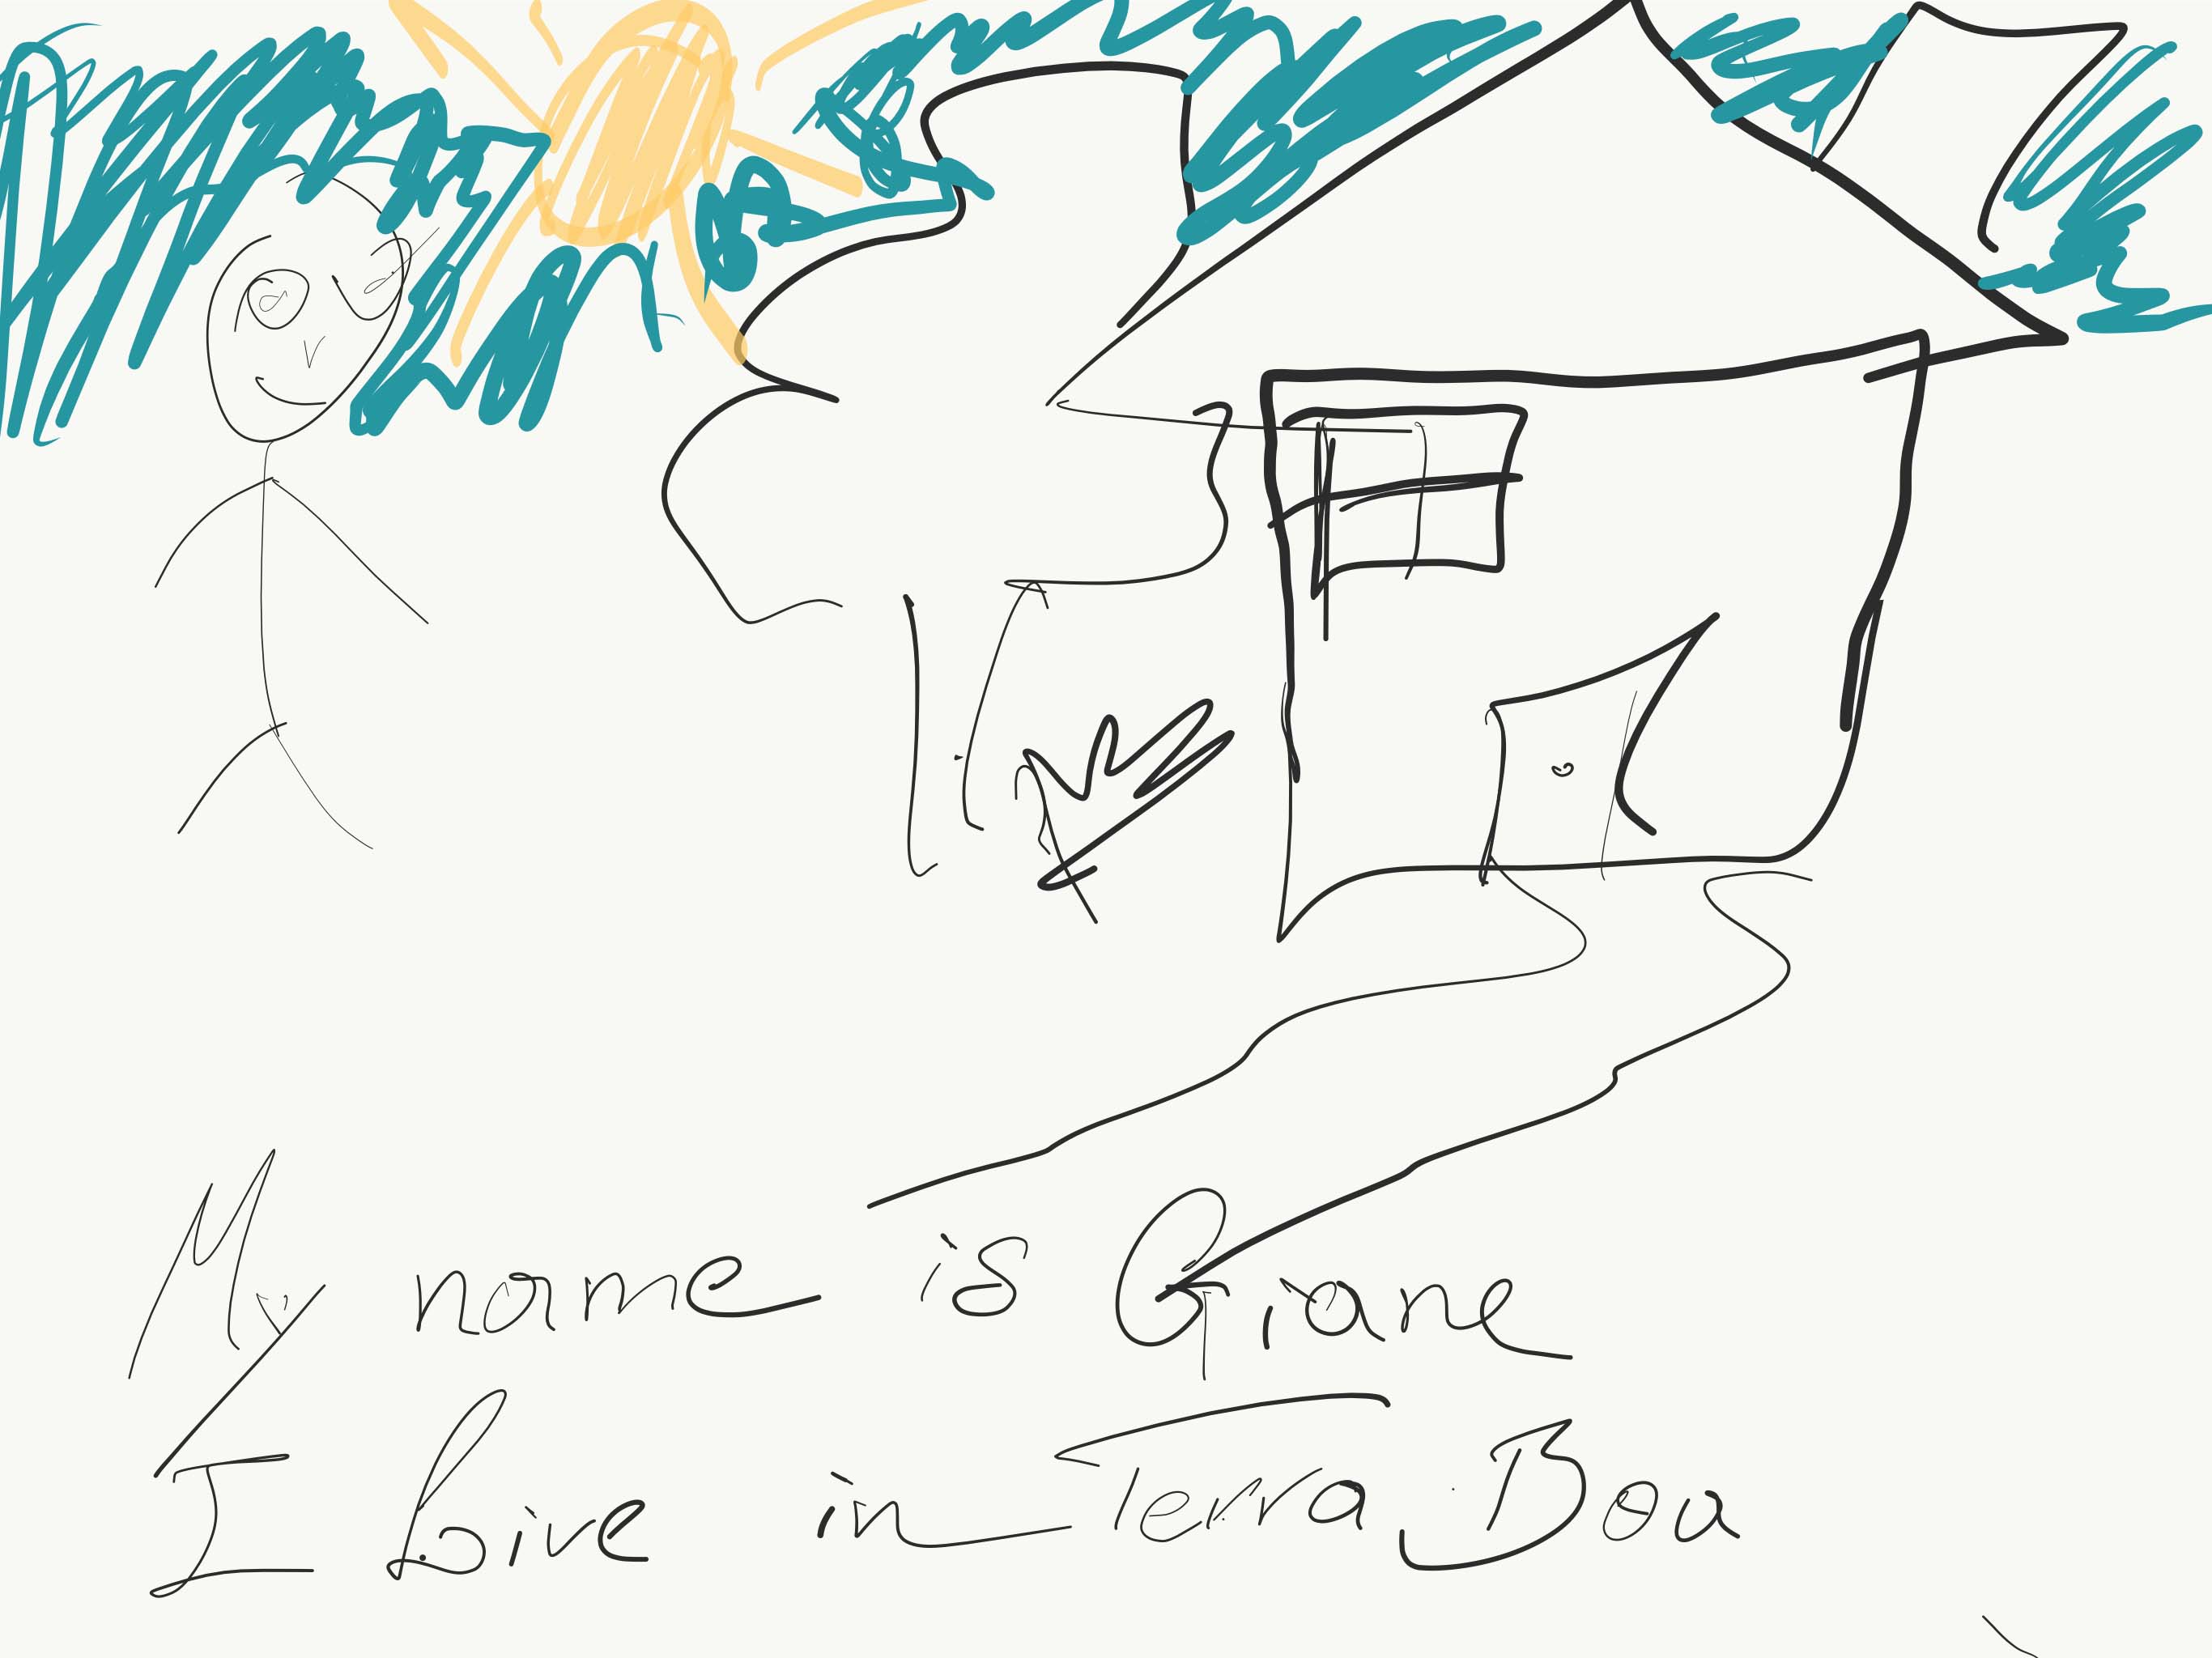 My name is Giane
I live in Terra Boa